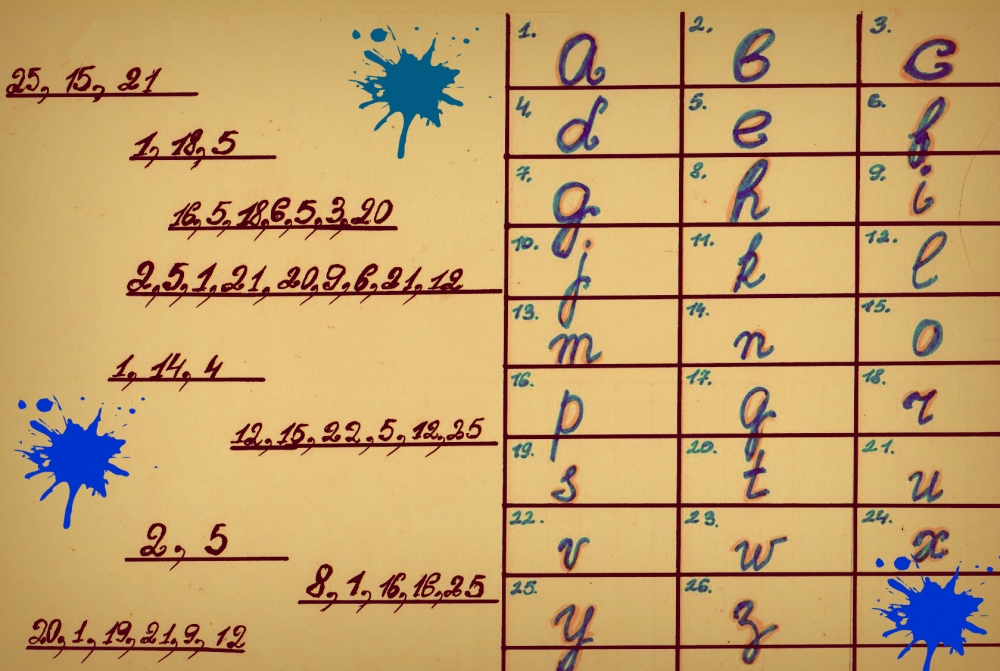 25, 15, 21
1, 18, 5
16, 5, 18, 6, 5, 3, 20
2, 5, 1, 21, 20, 9, 6, 21, 12
1, 14, 4
12, 15, 22, 5, 12, 25
2, 5
8, 1, 16, 16, 25
20, 1, 19, 21, 9, 12
1. a 2. b 3. c
4. d 5. e 6. f
7. g 8. h 9. i
10. j 11. k 12. l
13. m 14. n 15. o
16. p 17. q 18. r
19. s 20. t 21. u
22. v 23. w 24. x
25. y 26. z